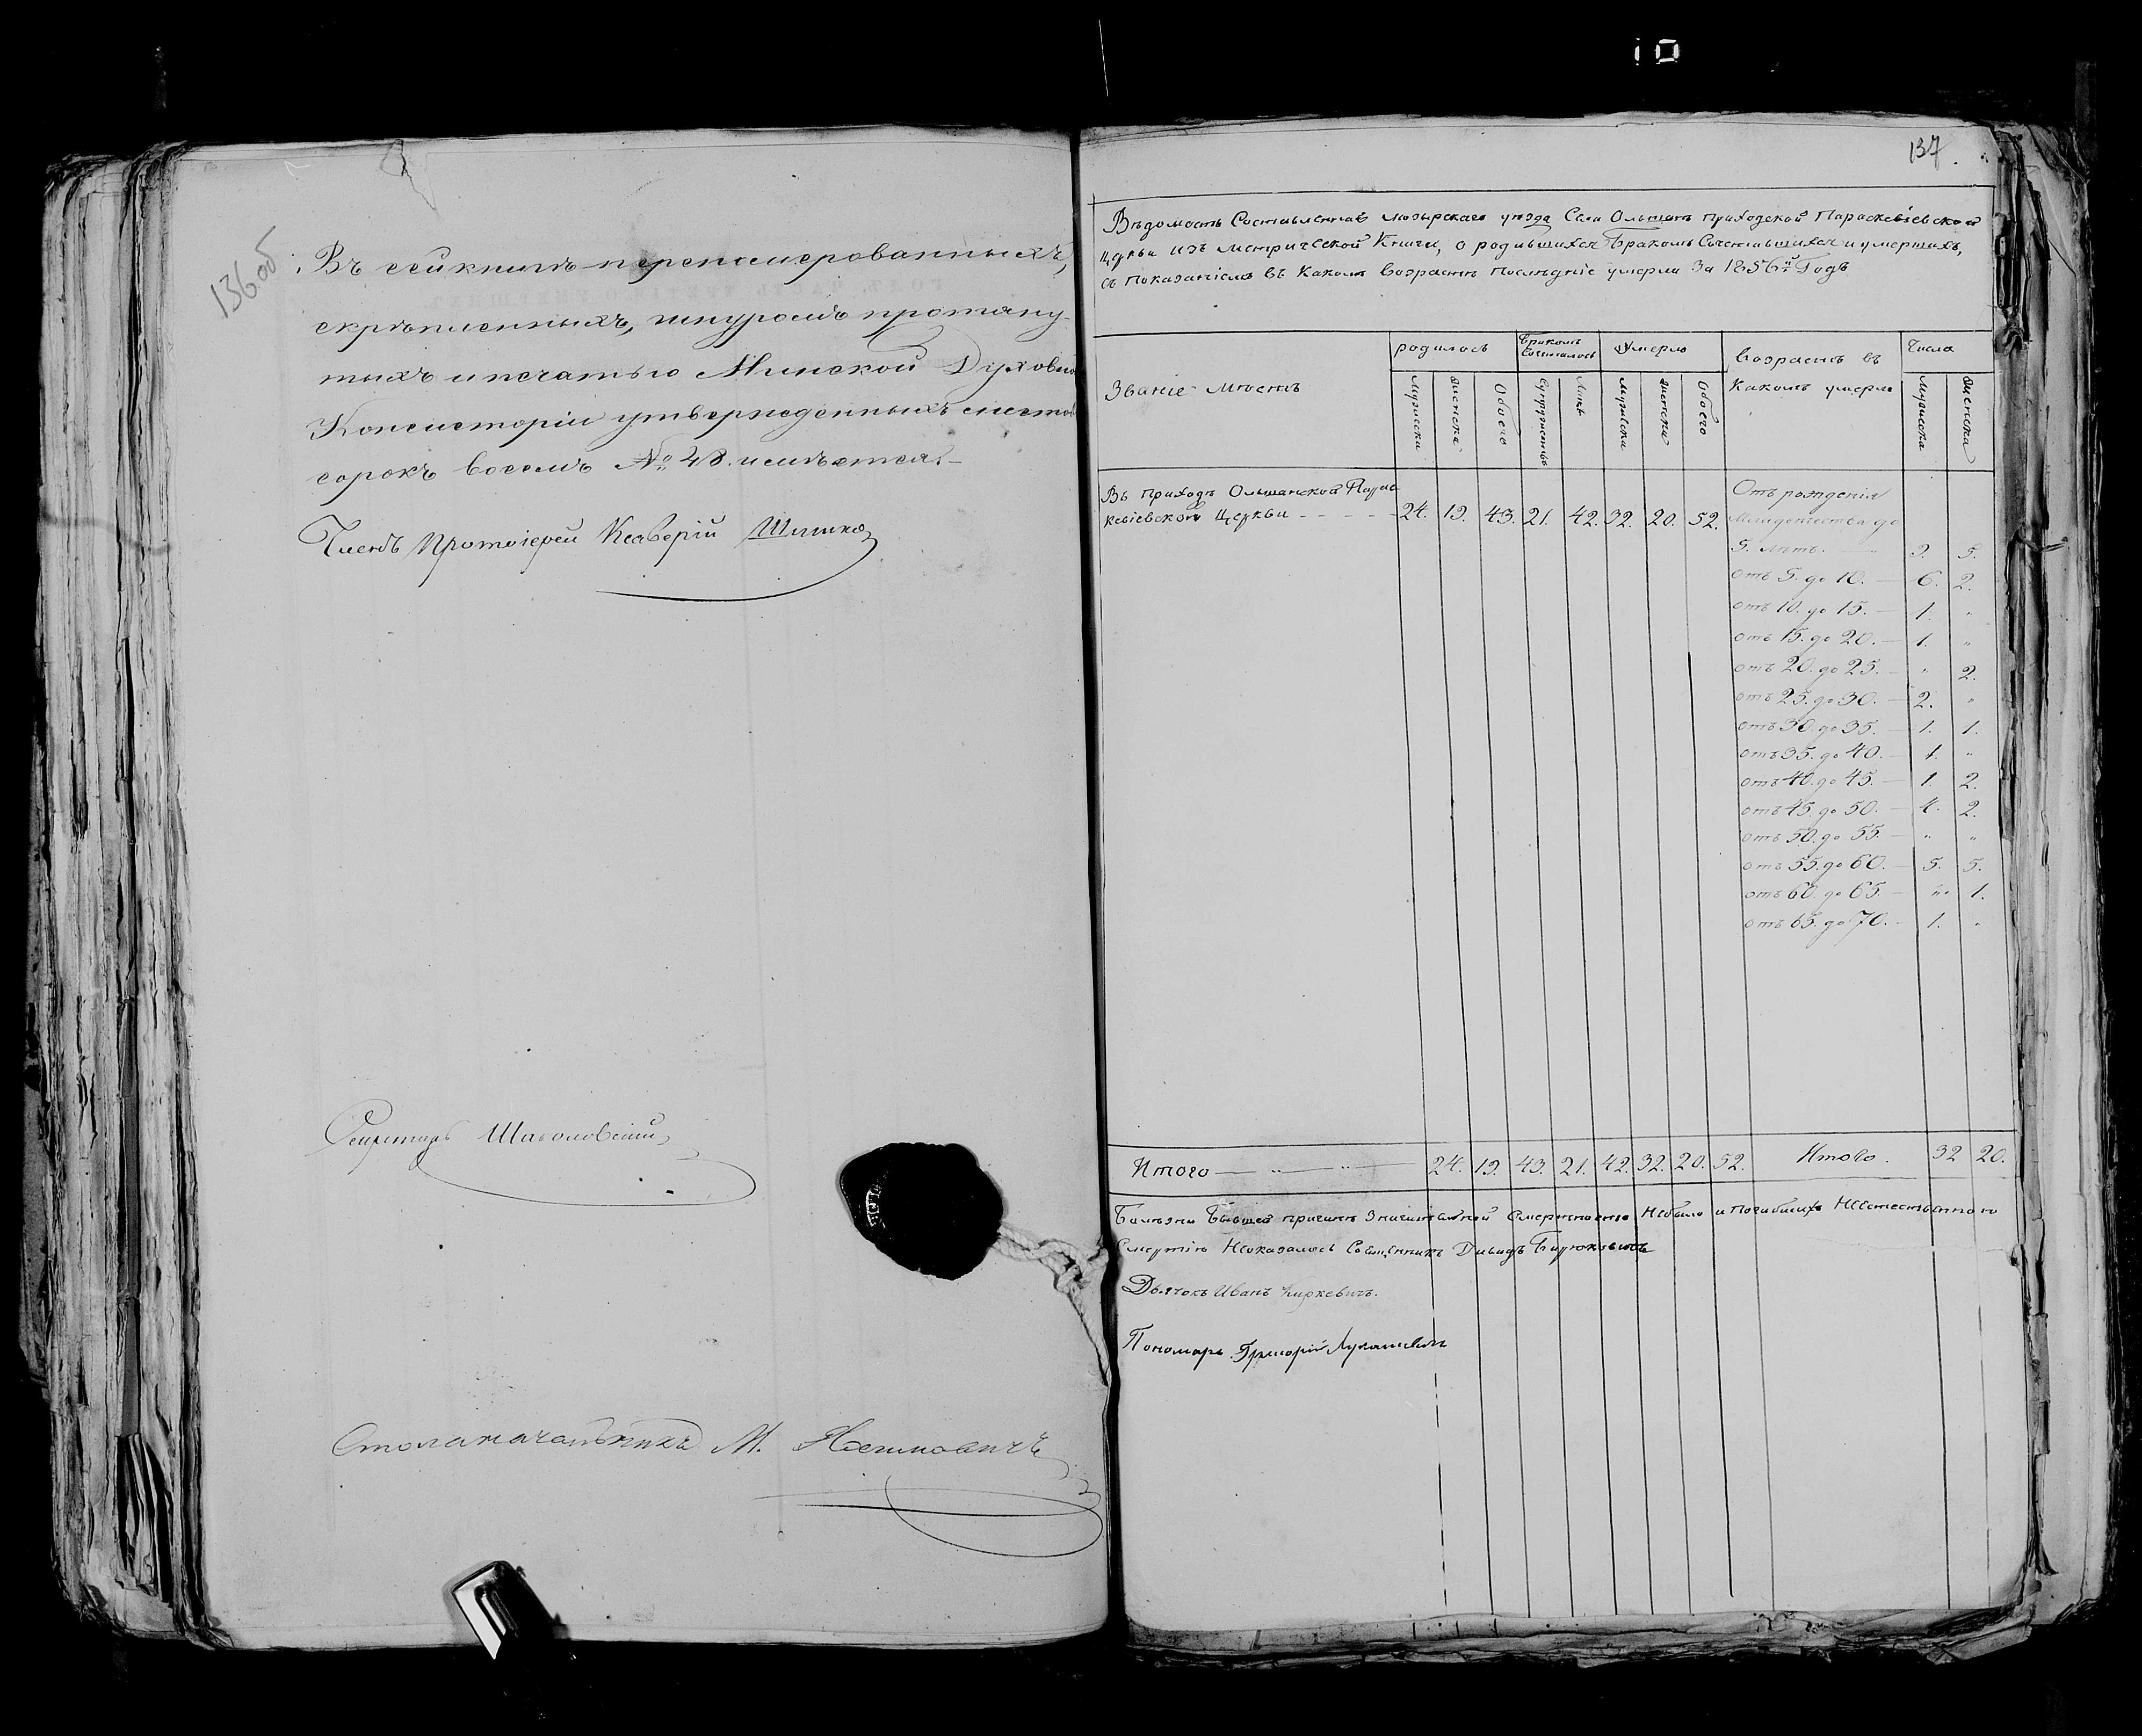 136об
Въ сей книгѣ перенумерованныхъ,
скрѣпленныхъ, шнуромъ протяну-
тыхъ и печатью Минской Духовной
Консисторіи утвержденныхъ листовъ
сорокъ восемь № 48. имѣется.
Членъ Протоіерей Ксаверій
Секретарь
Столоначальникъ М.
10
137.
Вѣдомость Составленная Мозырскаго уѣзда Села Ольшанъ приходской Параскевіевской
Церкви изъ Метрической Книги, о родившихся Бракомъ Сочетавшихся и умершихъ,
съ показаніемъ въ Какомъ Возрастѣ последніе умерли За 1856й Годъ
Званіе мѣстъ
родилось
Бракомъ Сочеталось
Умерло
Возрастъ въ
Какомъ умерли
Числа
Мужеска
Женска
Обоего
Супружествъ
Лицъ
Мужеска
Женска
Обоего
Мужеска
Женска
Въ приходѣ Ольшанской Парас
кевіевской Церкви - - - - - 24. 19. 43. 21. 42. 32. 20. 52.
Отъ рожденія
Младенчества до
5. лѣтъ. 9. 5.
отъ 5. до 10. — 6. 2.
отъ 10. до 15. — 1. "
отъ 15. до 20. — 1. "
отъ 20. до 25. — " 2.
отъ 25. до 30. — 2. "
отъ 30. до 35. — 1. 1.
отъ 35. до 40. — 1. "
отъ 40. до 45. — 1. 2.
отъ 45. до 50. — 4. 2.
отъ 50. до 55. — " "
отъ 55. до 60. — 5. 5.
отъ 60. до 65 — " 1.
отъ 65. до 70. — 1. "
Итого — " — " — 24. 19. 43. 21. 42. 32. 20. 52. Итого. 32 20.
Болѣзни Бывшей причинѣ Значительной Смертности Небыло и погибшихъ Неестественною
Смертію Неоказалось Священникъ Давидъ Бирюковичъ
Дьячокъ Иванъ
Пономарь Григорій Лукашевичъ